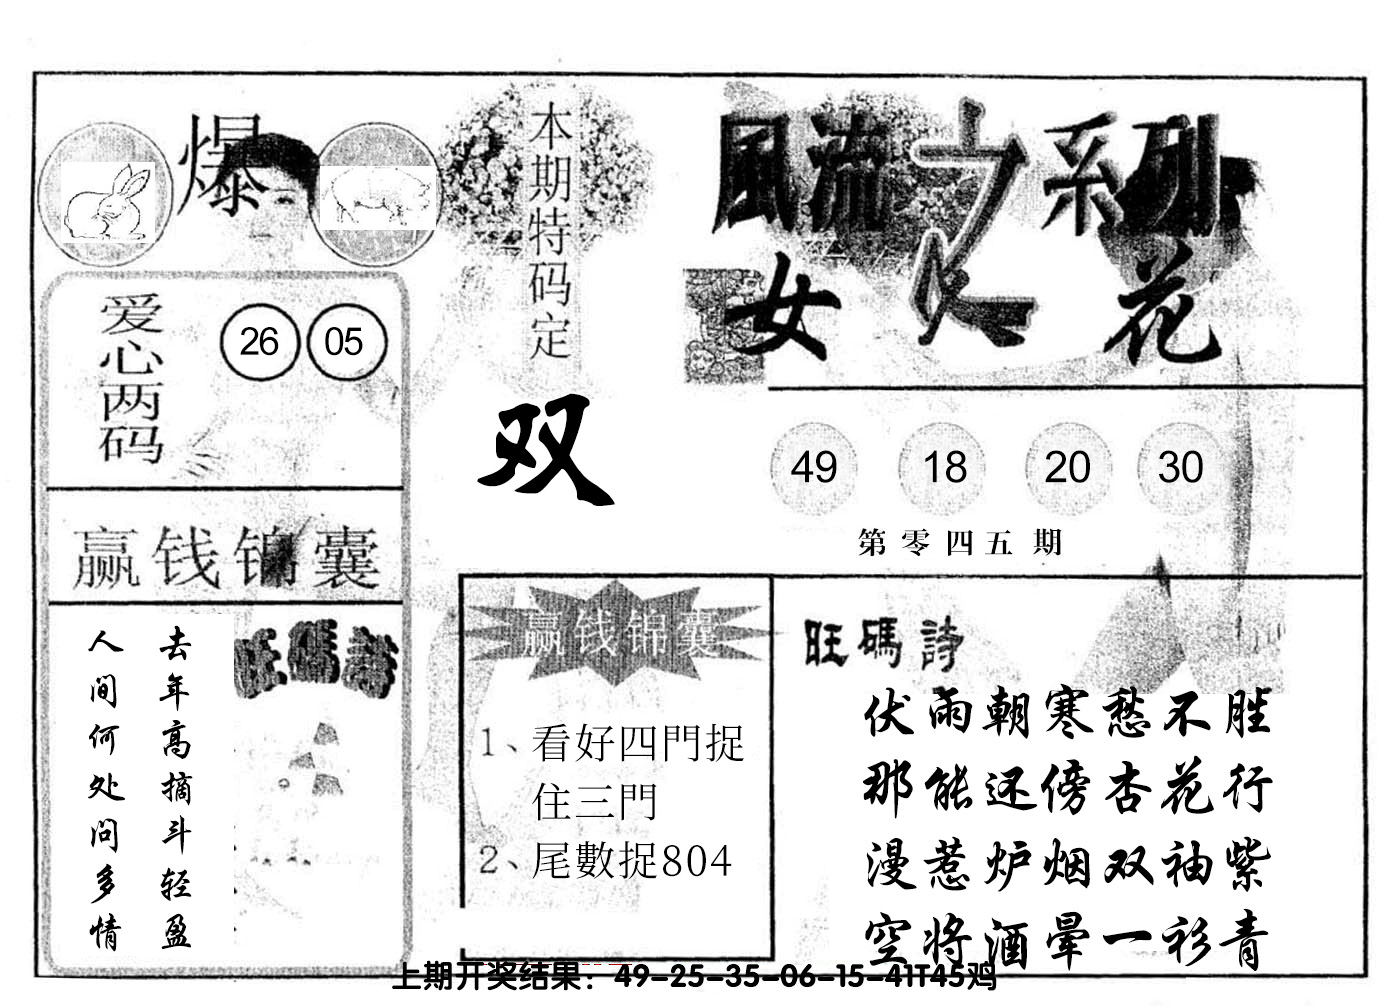 爆
本期特码定
双
風流之系列
女人花
爱心两码
26 05
49 18 20 30
第零四五期
赢钱锦囊
旺碼詩
去年高摘斗轻盈
人间何处问多情
赢钱锦囊
1、看好四門捉
住三門
2、尾數捉804
旺碼詩
伏雨朝寒愁不胜
那能还傍杏花行
漫惹炉烟双袖紫
空将酒晕一衫青
上期开奖结果：49-25-35-06-15-41T45鸡